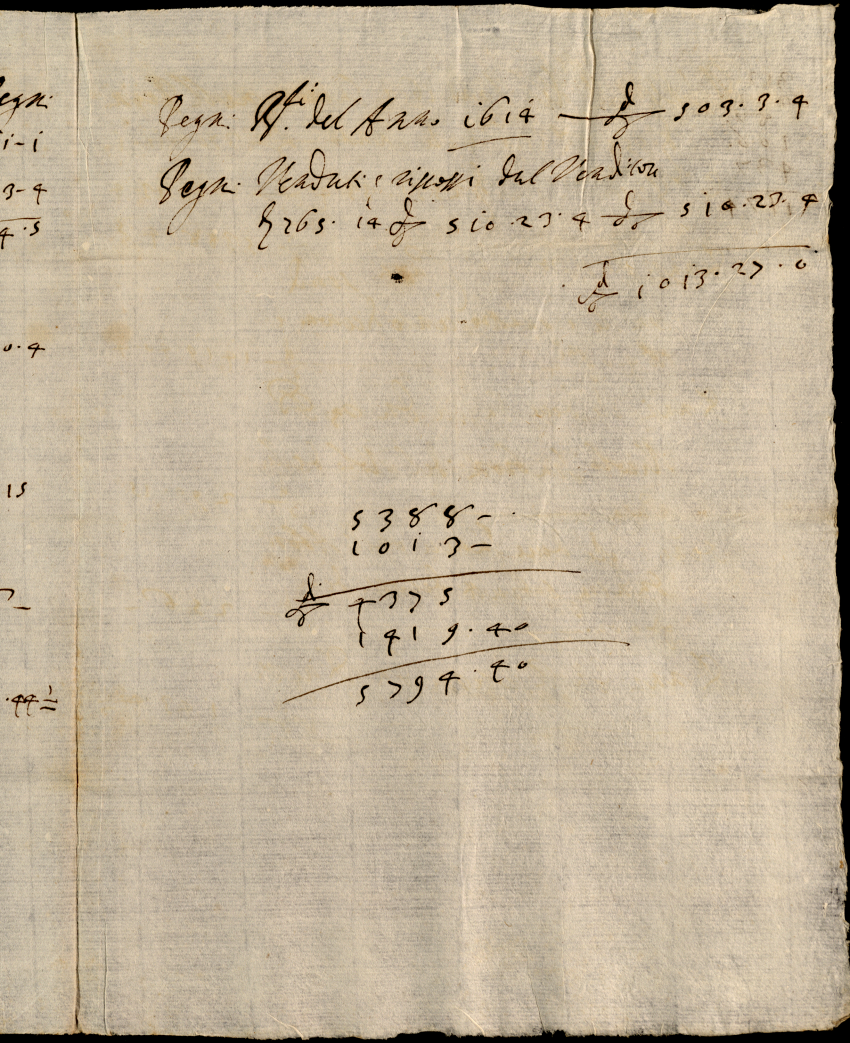 egni
1-1
3-4
4.5
0.4
15
.44
Pegni R.ti del Anno 1614 — 503.3.4
Pegni Venduti e rischossi dal Venditore
765. 14 510.23.4 510.23.4
1013.27.0
5388-
1013-
4375
1419.40
5794.40